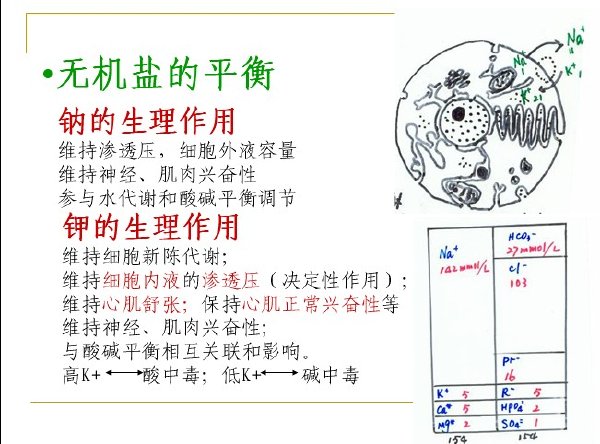 •无机盐的平衡
钠的生理作用
维持渗透压，细胞外液容量
维持神经、肌肉兴奋性
参与水代谢和酸碱平衡调节
钾的生理作用
维持细胞新陈代谢;
维持细胞内液的渗透压（决定性作用）;
维持心肌舒张; 保持心肌正常兴奋性等
维持神经、肌肉兴奋性;
与酸碱平衡相互关联和影响。
高K+ ⟷ 酸中毒; 低K+⟷ 碱中毒
Na⁺
Na
K⁺
K⁺
Na⁺
142mmol/L
HCO₃⁻
27mmol/L
Cl⁻
103
Pr⁻
16
K⁺ 5
R⁻ 5
Ca⁺ 5
HPO₄⁼ 2
Mg⁺ 2
SO₄⁼ 1
154
154